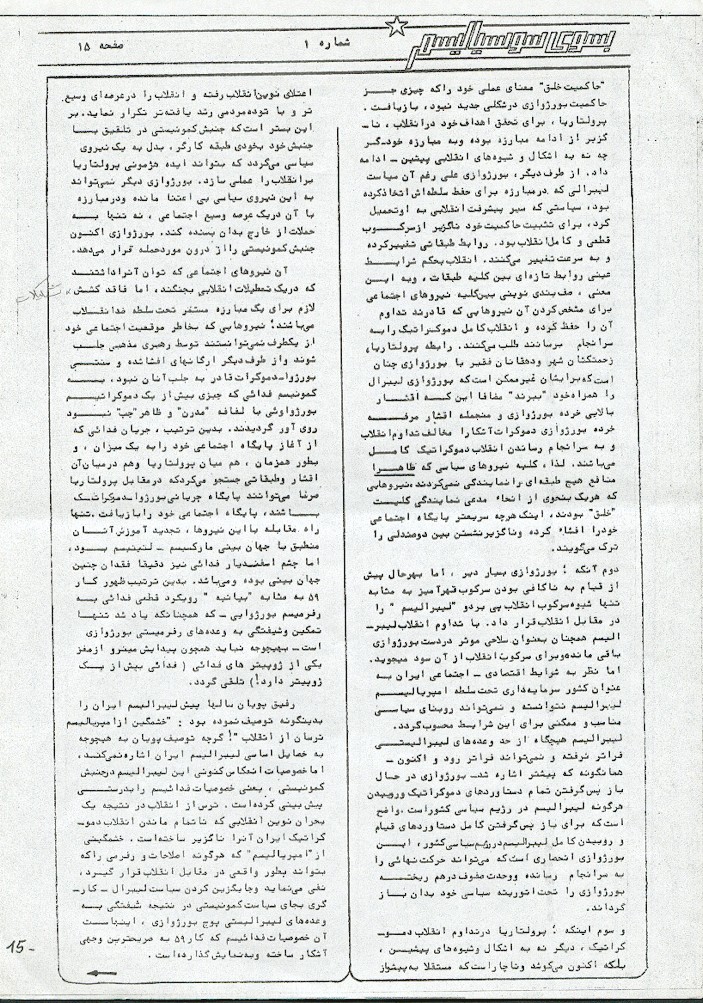 بسوی سوسیالیسم
شماره ۱
صفحه ۱۵
"حاکمیت خلق" معنای عملی خود را که چیزی جـــز
حاکمیت بورژوازی در شکلی جدید نبود، بازیافت .
پرولتاریا ، برای تحقق اهداف خود در انقلاب ، نا-
گزیر از ادامه مبارزه بوده و به مبارزه خود-گــر
چه نه به اشکال و شیوه‌های انقلابی پیشین - ادامه
داد. از طرف دیگر، بورژوازی علی رغم آن سیاست
لیبرالی که درمبارزه برای حفظ سلطه‌اش اتخاذکرده
بود، سیاستی که سیر پیشرفت انقلابی به اوتحمیل
کرد، برای تثبیت حاکمیت خود ناگزیر ازسرکــوب
قطعی و کامل انقلاب بود. روابط طبقاتی تغییرکرده
و به سرعت تغییر می‌کنند. انقلاب بحکم شرایـــط
عینی روابط تازه‌ای بین کلیه طبقات ، وبه ایــن
معنی ، صف‌بندی نوینی بین‌کلیه نیروهای اجتماعی
برای مشخص‌کردن آن نیروهایی که قادرند تداوم
آن را حفظ کرده و انقلاب کامل دموکراتیک رابــه
سرانجام برسانند طلب می‌کنند. رابطه پرولتاریا،
زحمتکشان شهر ودهقانان فقیر با بورژوازی چنان
است که برایشان غیرممکن است که بورژوازی لیبرال
را همراه خود "ببرند" مضافا این کـــه اقشـــار
بالایی خرده بورژوازی و منجمله اقشار مرفـــه
خرده بورژوازی دموکرات آشکارا مخالف تداوم انقلاب
و به سرانجام رساندن انقلاب دموکراتیک کامــل
می‌باشند. لذا، کلیه نیروهای سیاسی که ظاهـــرا
منافع هیچ طبقه‌ای را نمایندگی نمی‌کردند، نیروهایی
که هریک بنحوی از انحاء مدعی نمایندگی کلیــت
"خلق" بودند، اینک هرچه سریعتر پایگاه اجتماعی
خود را افشاء کرده وناگزیر نشستن بین دوصندلی را
ترک می‌گویند.
دوم آنکه ؛ بورژوازی بسیار دیر ، اما بهرحال پیش
از قیام به ناکافی بودن سرکوب قهرآمیز به مثابه
تنها شیوه سرکوب انقلاب پی بردو "لیبرالیسم " را
در مقابل انقلاب قرار داد. با تداوم انقلاب لیبر-
الیسم همچنان بعنوان سلاحی موثر دردست بورژوازی
باقی مانده وبرای سرکوب انقلاب از آن سود می‌جوید.
اما نظر به شرایط اقتصادی - اجتماعی ایران به
عنوان کشور سرمایه‌داری تحت سلطه امپریالیســم
لیبرالیسم نتوانسته و نمی‌تواند روبنای سیاســی
مناسب و ممکنی برای این شرایط محسوب گردد.
لیبرالیسم هیچگاه از حد وعده‌های لیبرالیستــی
فراتر نرفته و نمی‌تواند فراتر رود و اکنون -
همانگونه که پیشتر اشاره شد- بورژوازی در حـال
باز پس‌گرفتن تمام دستاوردهای دموکراتیک وروبیدن
هرگونه لیبرالیسم در رژیم سیاسی کشوراست. واضح
است که برای باز پس‌گرفتن کامل دستاوردهای قیام
و روبیدن کامل لیبرالیسم در رژیم سیاسی کشور ، ایــن
بورژوازی انحصاری است که می‌تواند حرکت نهائی را
به سرانجام رسانده ووحدت صفوف درهم ریختـــه
بورژوازی را تحت اتوریته سیاسی خود بدان بــاز
گرداند.
و سوم اینکه ؛ پرولتاریا درتداوم انقلاب دمــو-
کراتیک ، دیگر نه به اشکال وشیوه‌های پیشیـن ،
بلکه اکنون می‌کوشد وناچاراست که مستقلا به پیشواز
اعتلای نوین انقلاب رفته و انقلاب را درعرصه‌ای وسیع
تر و با توده مردمی رشد یافته‌تر تکرار نماید. بر
این بستر است که جنبش کمونیستی در تلفیق بـــا
جنبش خود بخودی طبقه کارگر، بدل به یک نیروی
سیاسی می‌گردد که بتواند ایده هژمونی پرولتاریا
برانقلاب را عملی سازد. بورژوازی دیگر نمی‌تواند
به این نیروی سیاسی بی اعتنا مانده ودرمبارزه
با آن دریک عرصه وسیع اجتماعی ، نه تنها بــه
حملات از خارج بدان بسنده کند. بورژوازی اکنون
جنبش کمونیستی را از درون موردحمله قرار می‌دهد.
آن نیروهای اجتماعی که توان آنرا داشتنــد
که دریک تعطیلات انقلابی بجنگند، اما فاقد کشش
تشکیلات
لازم برای یک مبارزه مستمر تحت سلطه ضدانقــلاب
می‌باشند؛ نیروهایی که بخاطر موقعیت اجتماعی خود
از یکطرف نمی‌توانستند توسط رهبری مذهبی جلــب
شوند واز طرف دیگر ارگانهای افشاشده و سنتــی
بورژوا-دموکرات قادر به جلب آنان نبود، بـــه
کمونیسم فدائی که چیزی بیش از یک دموکراتیسـم
بورژواوئی با لفافه "مدرن" و ظاهر "چپ" نبــود
روی آور گردیدند. بدین ترتیب ، جریان فدائی که
از آغاز پایگاه اجتماعی خود را به یک میزان ، و
بطور همزمان ، هم میان پرولتاریا وهم درمیان آن
اقشار وطبقاتی جستجو می‌کردکه درمقابل پرولتاریا
صرفا می‌توانند پایگاه جریانی بورژوا-دموکراتیک
بـــاشند، پایگاه اجتماعی خود را بازیافت .تنها
راه مقابله بااین نیروها ، تجدید آموزش آنــان
منطبق با جهان بینی مارکسیسم - لنینیسم بــود،
اما چشم اسفندیار فدائی نیز دقیقا فقدان چنین
جهان بینی بوده ومی‌باشد. بدین ترتیب ظهور کــار
۵۹ به مثابه "بیانیه " رویکرد قطعی فدائی بـه
رفرمیسم بورژوایی - که همچنانکه یاد شد تنهــا
تمکین وشیفتگی به وعده‌های رفرمیستی بورژوازی
است - بهیچوجه نباید همچون پیدایش مینرو ازمغز
یکی از ژوپیتر های فدائی ( فدائی بیش از یــک
ژوپیتر دارد!) تلقی گردد.
رفیق پویان سالها پیش لیبرالیسم ایران را
بدینگونه توصیف نموده بود : "خشمگین از امپریالیسم
ترسان از انقلاب "! گرچه توصیف پویان به هیچوجه
به خصایل اساسی لیبرالیسم ایران اشاره نمی‌کند،
اما خصوصیات انعکاس کنونی این لیبرالیسم درجنبش
کمونیستی ، یعنی خصوصیات فدائیسم را بدرستــی
پیش بینی کرده است . ترس از انقلاب در نتیجه یک
بحران نوین انقلابی که ناتمام ماندن انقلاب دمو-
کراتیک ایران آنرا ناگزیر ساخته است . خشمگینی
از "امپریالیسم" که هرگونه اصلاحات و رفرمی راکه
بتواند بطور واقعی در مقابل انقلاب قرار گیــرد،
نفی می‌نماید وجایگزین کردن سیاست لیبرال - کار-
گری بجای سیاست کمونیستی در نتیجه شیفتگی بــه
وعده‌های لیبرالیستی پوچ بورژوازی ، اینهاســت
آن خصوصیات فدائیسم که کار ۵۹ به صریحترین وجهی
آشکار ساخته وبه‌نمایش گذارده است .
15-